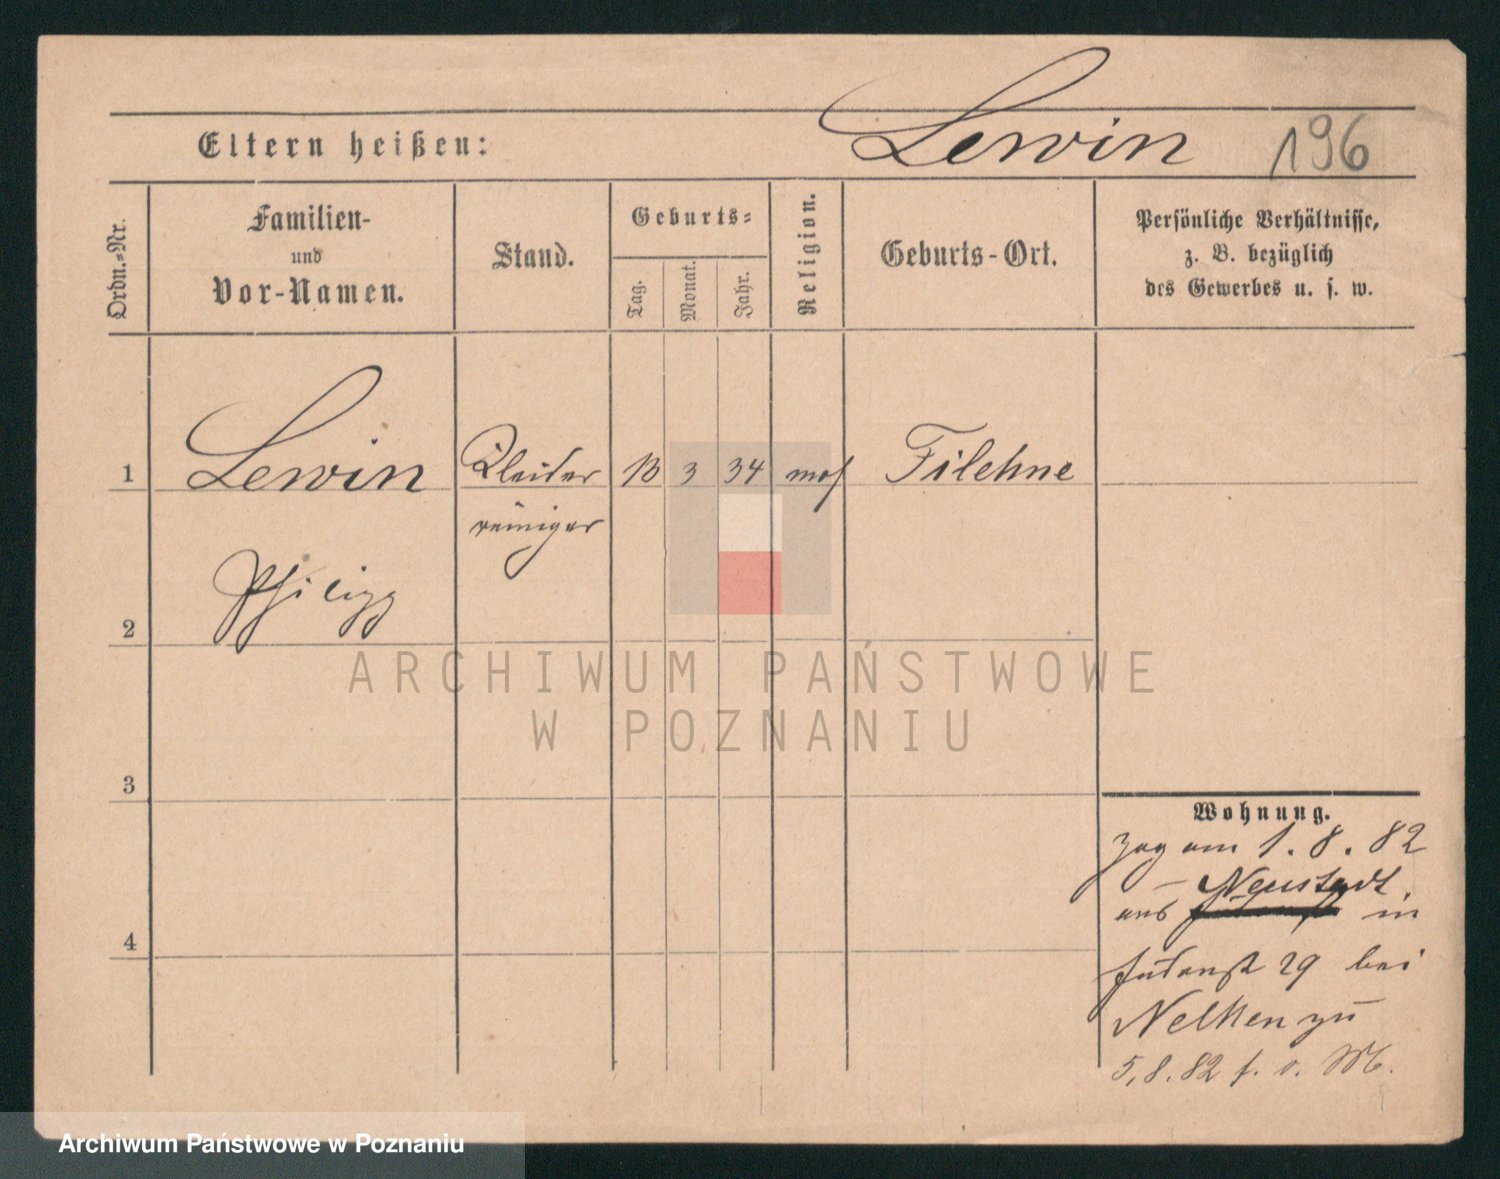 Eltern heißen: Lewin 196
Ordn.-Nr.
Familien-
und
Vor-Namen.
Stand.
Geburts-
Tag.
Monat.
Jahr.
Religion.
Geburts-Ort.
Persönliche Verhältnisse,
z. B. bezüglich
des Gewerbes u. s. w.
1 Lewin Kleider 13 3 34 mos Filehne
reiniger
Philipp
2
3
4
Wohnung.
zog am 1. 8. 82
– Neustadt.
aus in
Judenst 29 bei
Nelken zu
5.8.82 f. v. M.
ARCHIWUM PAŃSTWOWE
W POZNANIU
Archiwum Państwowe w Poznaniu